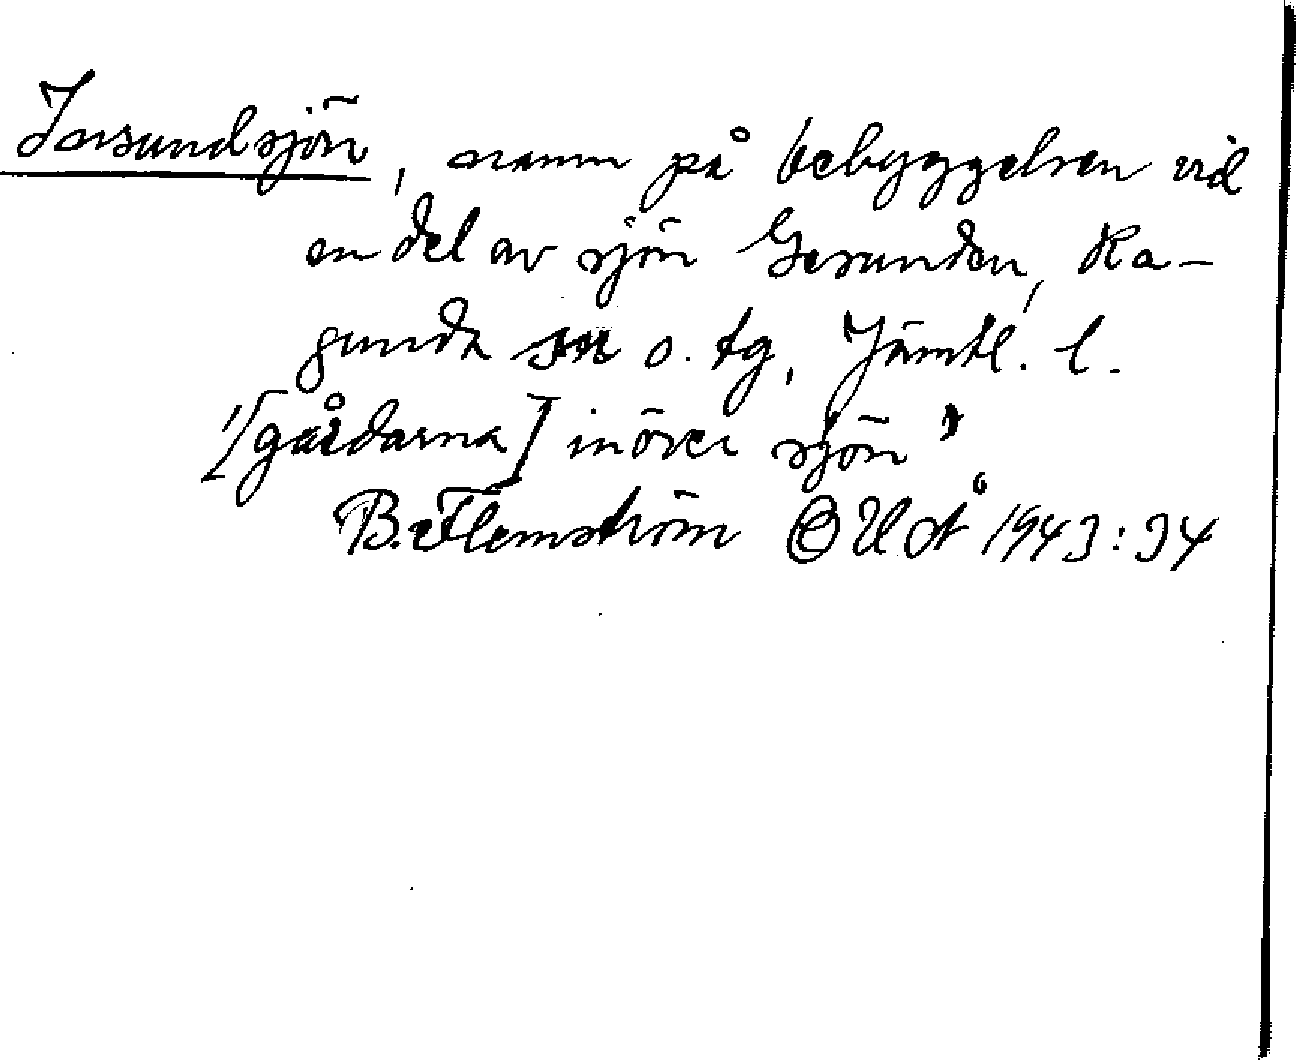 Jnsundsjön, namn på bebyggelsen vid
en del av sjön Gesunden, Ra-
gunda sn o. tg, Jämtl. l.
"[gårdarna] inöver sjön"
B. Flemström OUÅ 1943:34